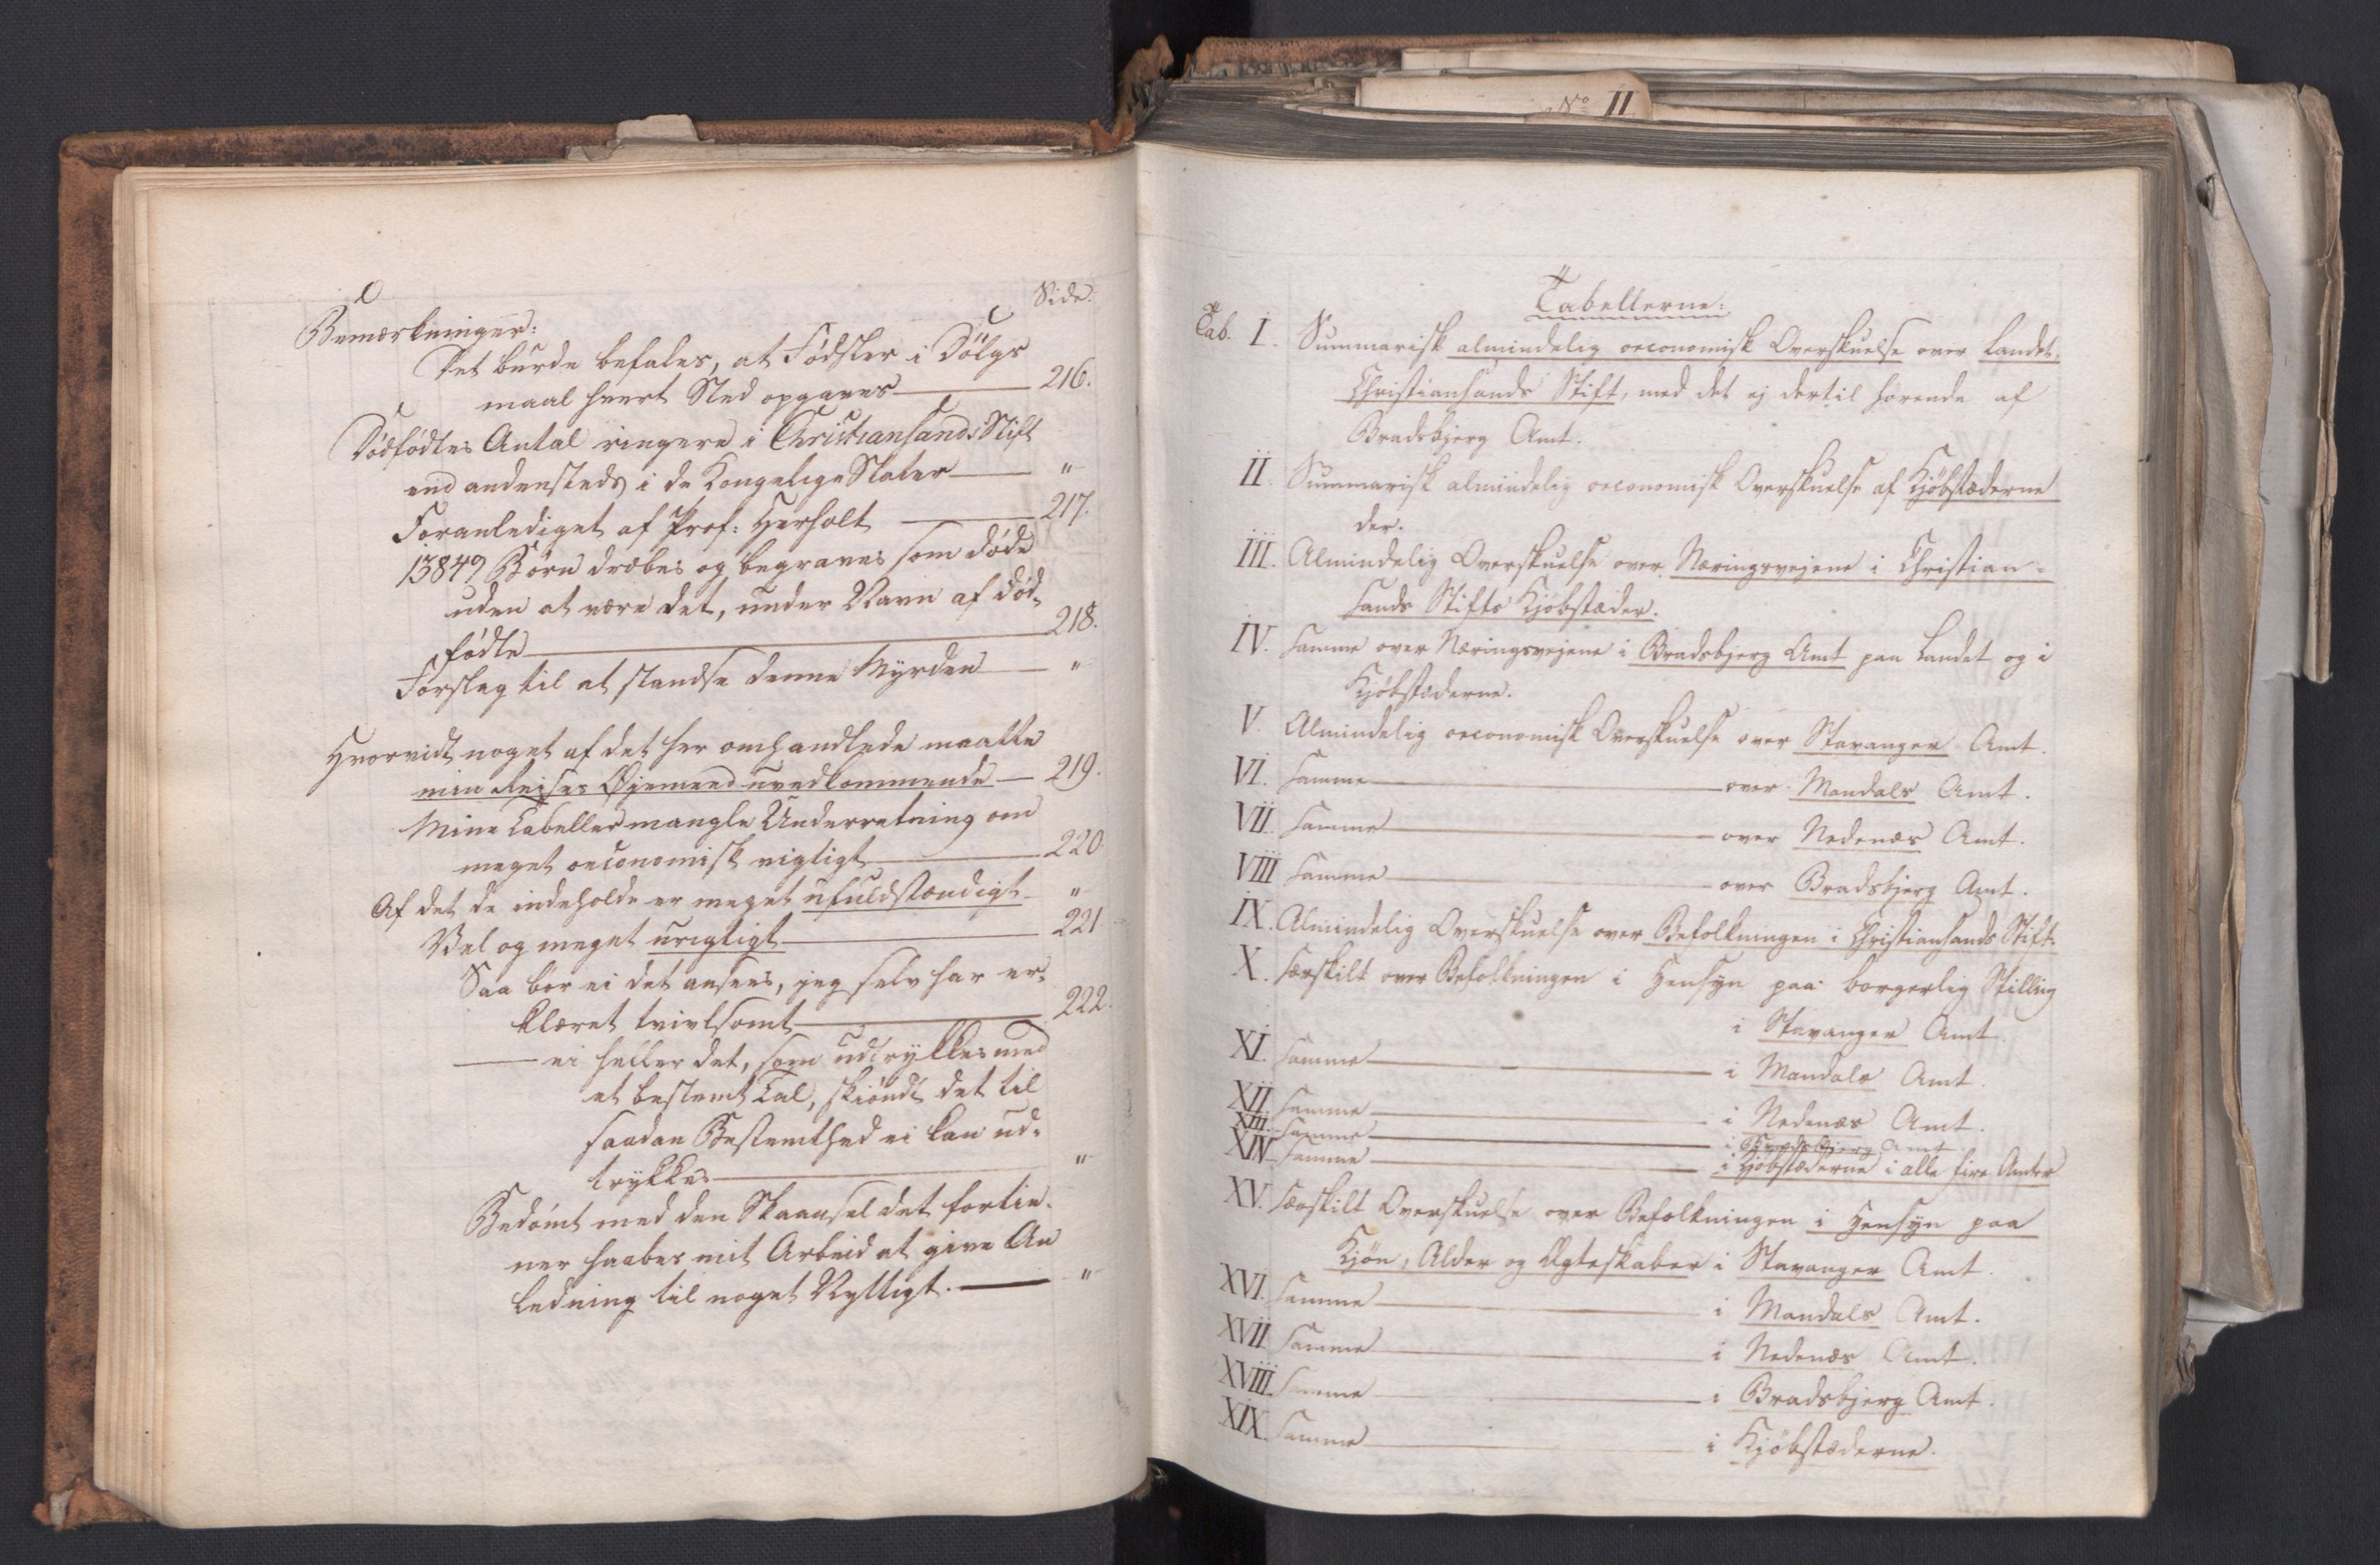 Side.
Bemærkninger:
Det burde befales, at Fødsler i Dølgs
maal hvert Sted opgaves — 216.
Dødfødtes Antal ringere i Christiansands Stift
end andensteds i de Kongelige Stater — "
Foranlediget af Prof: Herholt — 217.
13849 Børn dræbes og begraves som døde
uden at være det, under Navn af død-
fødte — 218.
Forslag til at standse denne Myrden — "
Hvorvidt noget af det her omhandlede maatte
min Reises Øjemeed uvedkommende — 219.
Mine Tabeller mangle Underretning om
meget oeconomisk vigtigt — 220.
Af det de indeholde er meget ufuldstændigt — "
Vel og meget urigtigt — 221
Saa bør ei det ansees, jeg selv har er-
klæret tvivlsomt — 222.
— ei heller det, som udtrykkes med
et bestemt Tal, skiøndt det til
saadan Bestemthed ei kan ud-
trykkes — "
Bedømt med den Skaansel det fortie-
ner haabes mit Arbeid at give An
ledning til noget Nyttigt. — "
No II
Tabellerne:
Tab. I. Summarisk almindelig oeconomisk Overskuelse over Landet,
Christiansands Stift, med det ej dertil hørende af
Bradsbjerg Amt.
II. Summarisk almindelig oeconomisk Overskuelse af Kjøbstæderne
der.
III. Almindelig Overskuelse over Næringsvejene i Christian-
sands Stifts Kjøbstæder.
IV. Samme over Næringsvejene i Bradsbjerg Amt paa Landet og i
Kjøbstæderne.
V. Almindelig oeconomisk Overskuelse over Stavanger Amt.
VI. Samme — over Mandals Amt.
VII. Samme — over Nedenæs Amt.
VIII Samme — over Bradsbjerg Amt.
IX. Almindelig Overskuelse over Befolkningen i Christiansands Stift.
X. Særskilt over Befolkningen i Hensyn paa borgerlig Stilling
i Stavanger Amt.
XI. Samme — i Mandals Amt.
XII. Samme — i Nedenæs Amt.
XIII. Samme — i Bradsbjerg Amt
XIV Samme — i Kjøbstæderne i alle fire Amter
XV. Særskilt Overskuelse over Befolkningen i Hensyn paa
Kjøn, Alder og Ægteskaber i Stavanger Amt.
XVI. Samme — i Mandals Amt.
XVII Samme — i Nedenæs Amt.
XVIII. Samme — i Bradsbjerg Amt.
XIX. Samme — i Kjøbstæderne.